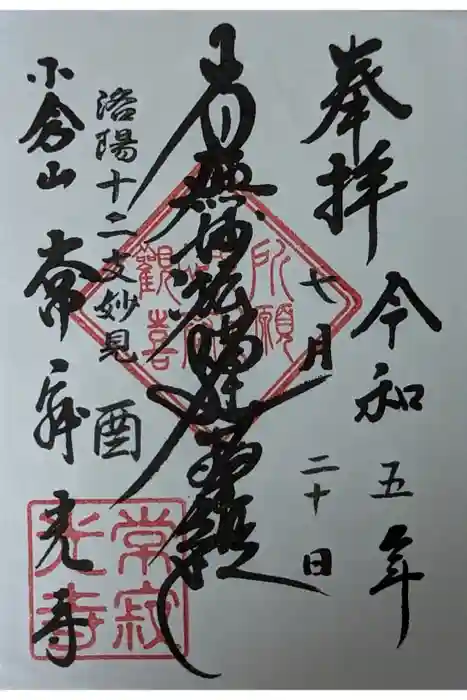 奉拝 令和五年
七月二十日
南無妙法蓮華経
洛陽十二支妙見 酉
小倉山 常寂光寺
所願
常寂
光寺